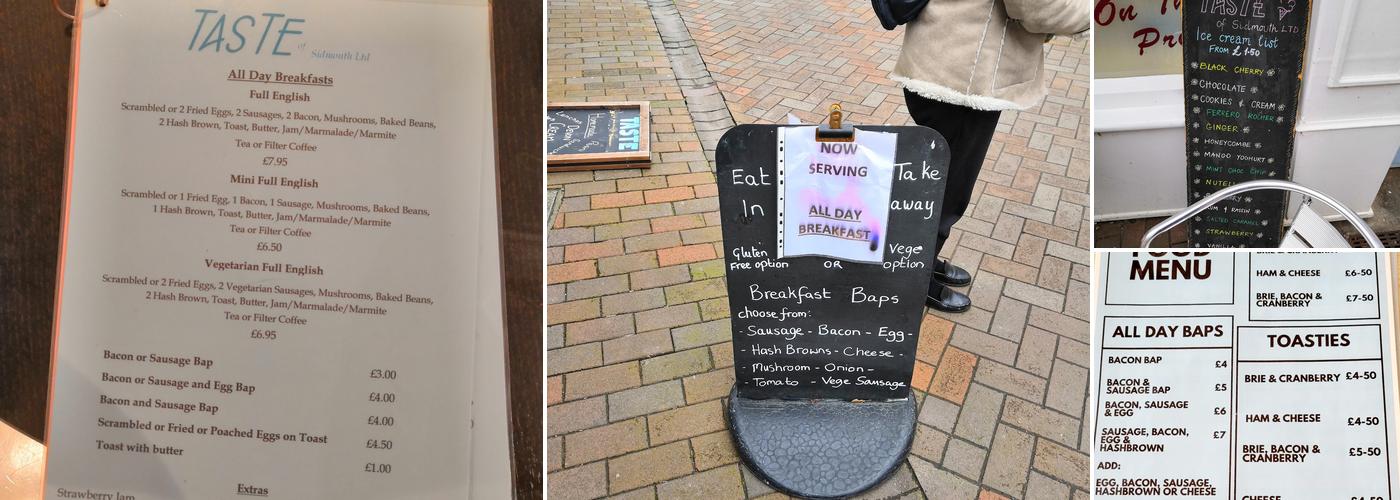 TASTE
of Sidmouth Ltd
All Day Breakfasts
Full English
Scrambled or 2 Fried Eggs, 2 Sausages, 2 Bacon, Mushrooms, Baked Beans,
2 Hash Brown, Toast, Butter, Jam/Marmalade/Marmite
Tea or Filter Coffee
£7.95
Mini Full English
Scrambled or 1 Fried Egg, 1 Bacon, 1 Sausage, Mushrooms, Baked Beans,
1 Hash Brown, Toast, Butter, Jam/Marmalade/Marmite
Tea or Filter Coffee
£6.50
Vegetarian Full English
Scrambled or 2 Fried Eggs, 2 Vegetarian Sausages, Mushrooms, Baked Beans,
2 Hash Brown, Toast, Butter, Jam/Marmalade/Marmite
Tea or Filter Coffee
£6.95
Bacon or Sausage Bap £3.00
Bacon or Sausage and Egg Bap £4.00
Bacon and Sausage Bap £4.00
Scrambled or Fried or Poached Eggs on Toast £4.50
Toast with butter £1.00
Extras
Strawberry Jam
TASTE
NOW
SERVING
ALL DAY
BREAKFAST
Eat
In
Take
away
Gluten
Free option
OR
Vege
option
Breakfast Baps
choose from:
- Sausage - Bacon - Egg -
- Hash Browns - Cheese -
- Mushroom - Onion -
- Tomato - Vege Sausage
On
TASTE
of Sidmouth LTD
Ice cream list
FROM £1.50
BLACK CHERRY
CHOCOLATE
COOKIES & CREAM
FERRERO ROCHER
GINGER
HONEYCOMBE
MANGO YOGHURT
MINT CHOC CHIP
NUTELL
RUM & RAISIN
SALTED CARAMEL
STRAWBERRY
VANILLA
FOOD
MENU
HAM & CHEESE £6-50
BRIE, BACON &
CRANBERRY £7-50
ALL DAY BAPS
BACON BAP £4
BACON &
SAUSAGE BAP £5
BACON, SAUSAGE
& EGG £6
SAUSAGE, BACON,
EGG &
HASHBROWN £7
ADD:
EGG, BACON, SAUSAGE,
HASHBROWN OR CHEESE
TOASTIES
BRIE & CRANBERRY £4-50
HAM & CHEESE £4-50
BRIE, BACON &
CRANBERRY £5-50
CHEESE £4-50